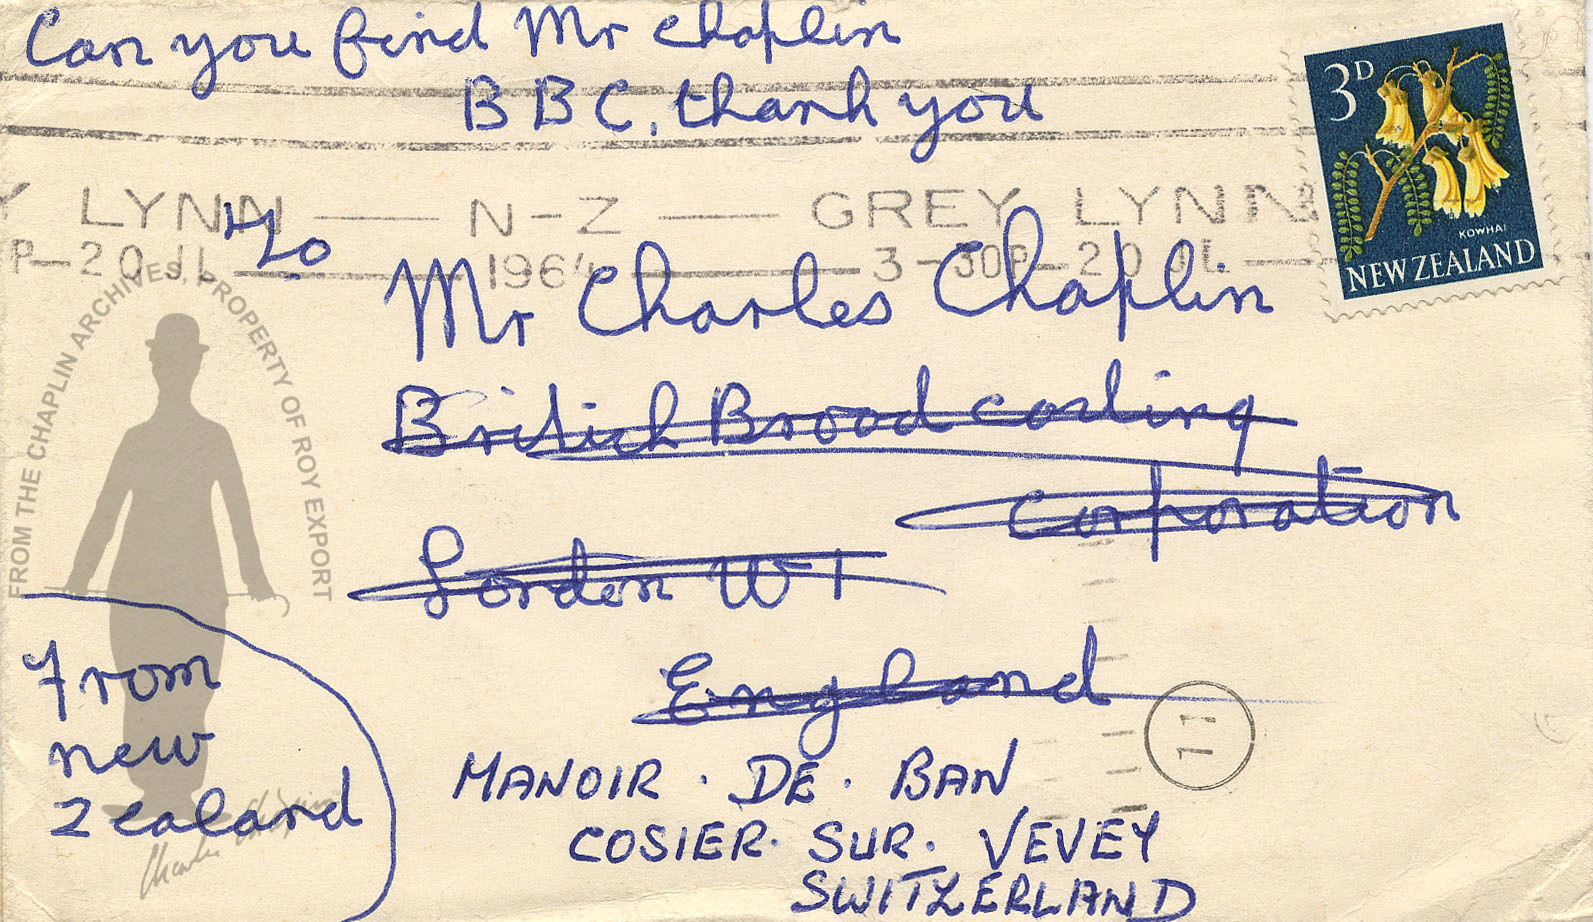 Can you find Mr Chaplin
BBC, thank you
3D
KOWHAI
NEW ZEALAND
Y LYNN — N-Z — GREY LYNN
P-20 JL — 1964 — 3-30P-20 JL
To
Mr Charles Chaplin
British Broadcasting
Corporation
London W1
England
MANOIR · DE · BAN
COSIER · SUR · VEVEY
SWITZERLAND
From
new
zealand
11
FROM THE CHAPLIN ARCHIVES, PROPERTY OF ROY EXPORT
Charles Chaplin